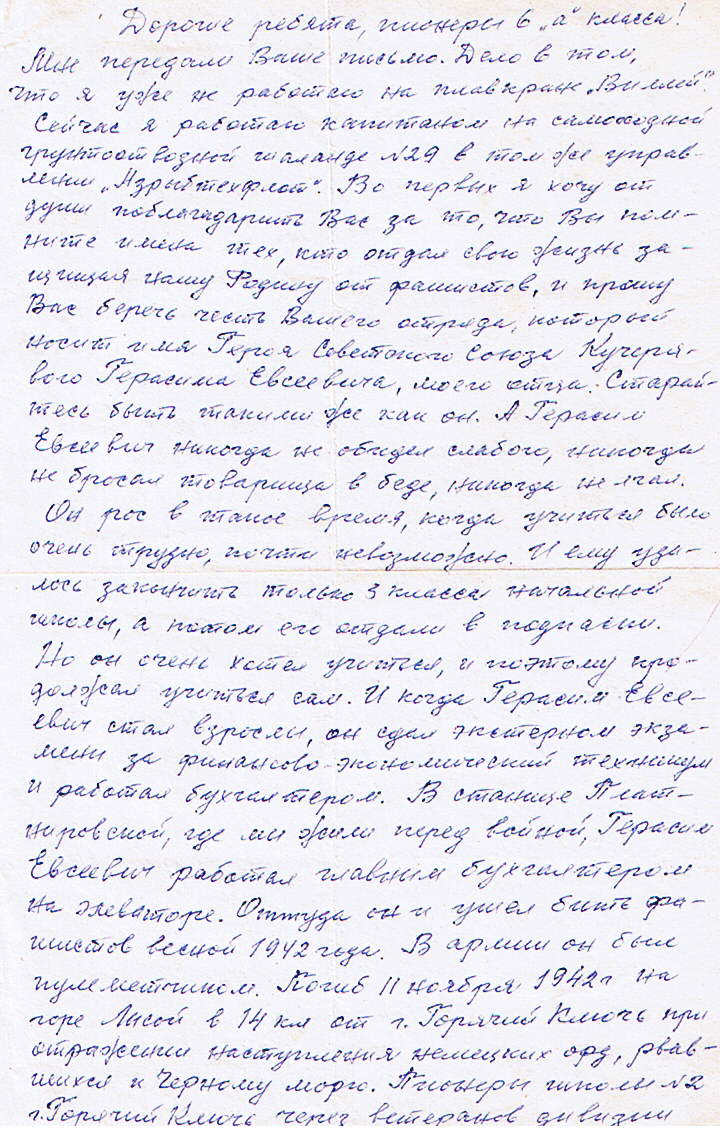 Дорогие ребята, пионеры 6 „а" класса!
Мне передали Ваше письмо. Дело в том,
что я уже не работаю на плавкране „Вилей".
Сейчас я работаю капитаном на самоходной
грунтоотвозной шаланде №29 в том же управ-
лении „Азрыбтехфлот". Во первых я хочу от
души поблагодарить Вас за то, что Вы пом-
ните имена тех, кто отдал свою жизнь за-
щищая нашу Родину от фашистов, и прошу
Вас беречь честь Вашего отряда, который
носит имя Героя Советского Союза Кучеря-
вого Герасима Евсеевича, моего отца. Старай-
тесь быть такими же как он. А Герасим
Евсеевич никогда не обидел слабого, никогда
не бросал товарища в беде, никогда не лгал.
Он рос в такое время, когда учиться было
очень трудно, почти невозможно. И ему уда-
лось закончить только 3 класса начальной
школы, а потом его отдали в подпаски.
Но он очень хотел учиться, и поэтому про-
должал учиться сам. И когда Герасим Евсе-
евич стал взрослы, он сдал экстерном экза-
мены за финансово-экономический техникум
и работал бухгалтером. В станице Плат-
нировской, где мы жили перед войной, Герасим
Евсеевич работал главным бухгалтером
на элеваторе. Оттуда он и ушел бить фа-
шистов весной 1942 года. В армии он был
пулеметчиком. Погиб 11 ноября 1942г на
горе Лысой в 14 км от г. Горячий Ключь при
отражении наступления немецких орд, рвав-
шихся к Черному морю. Пионеры школы №2
г. Горячий Ключь через ветеранов дивизии